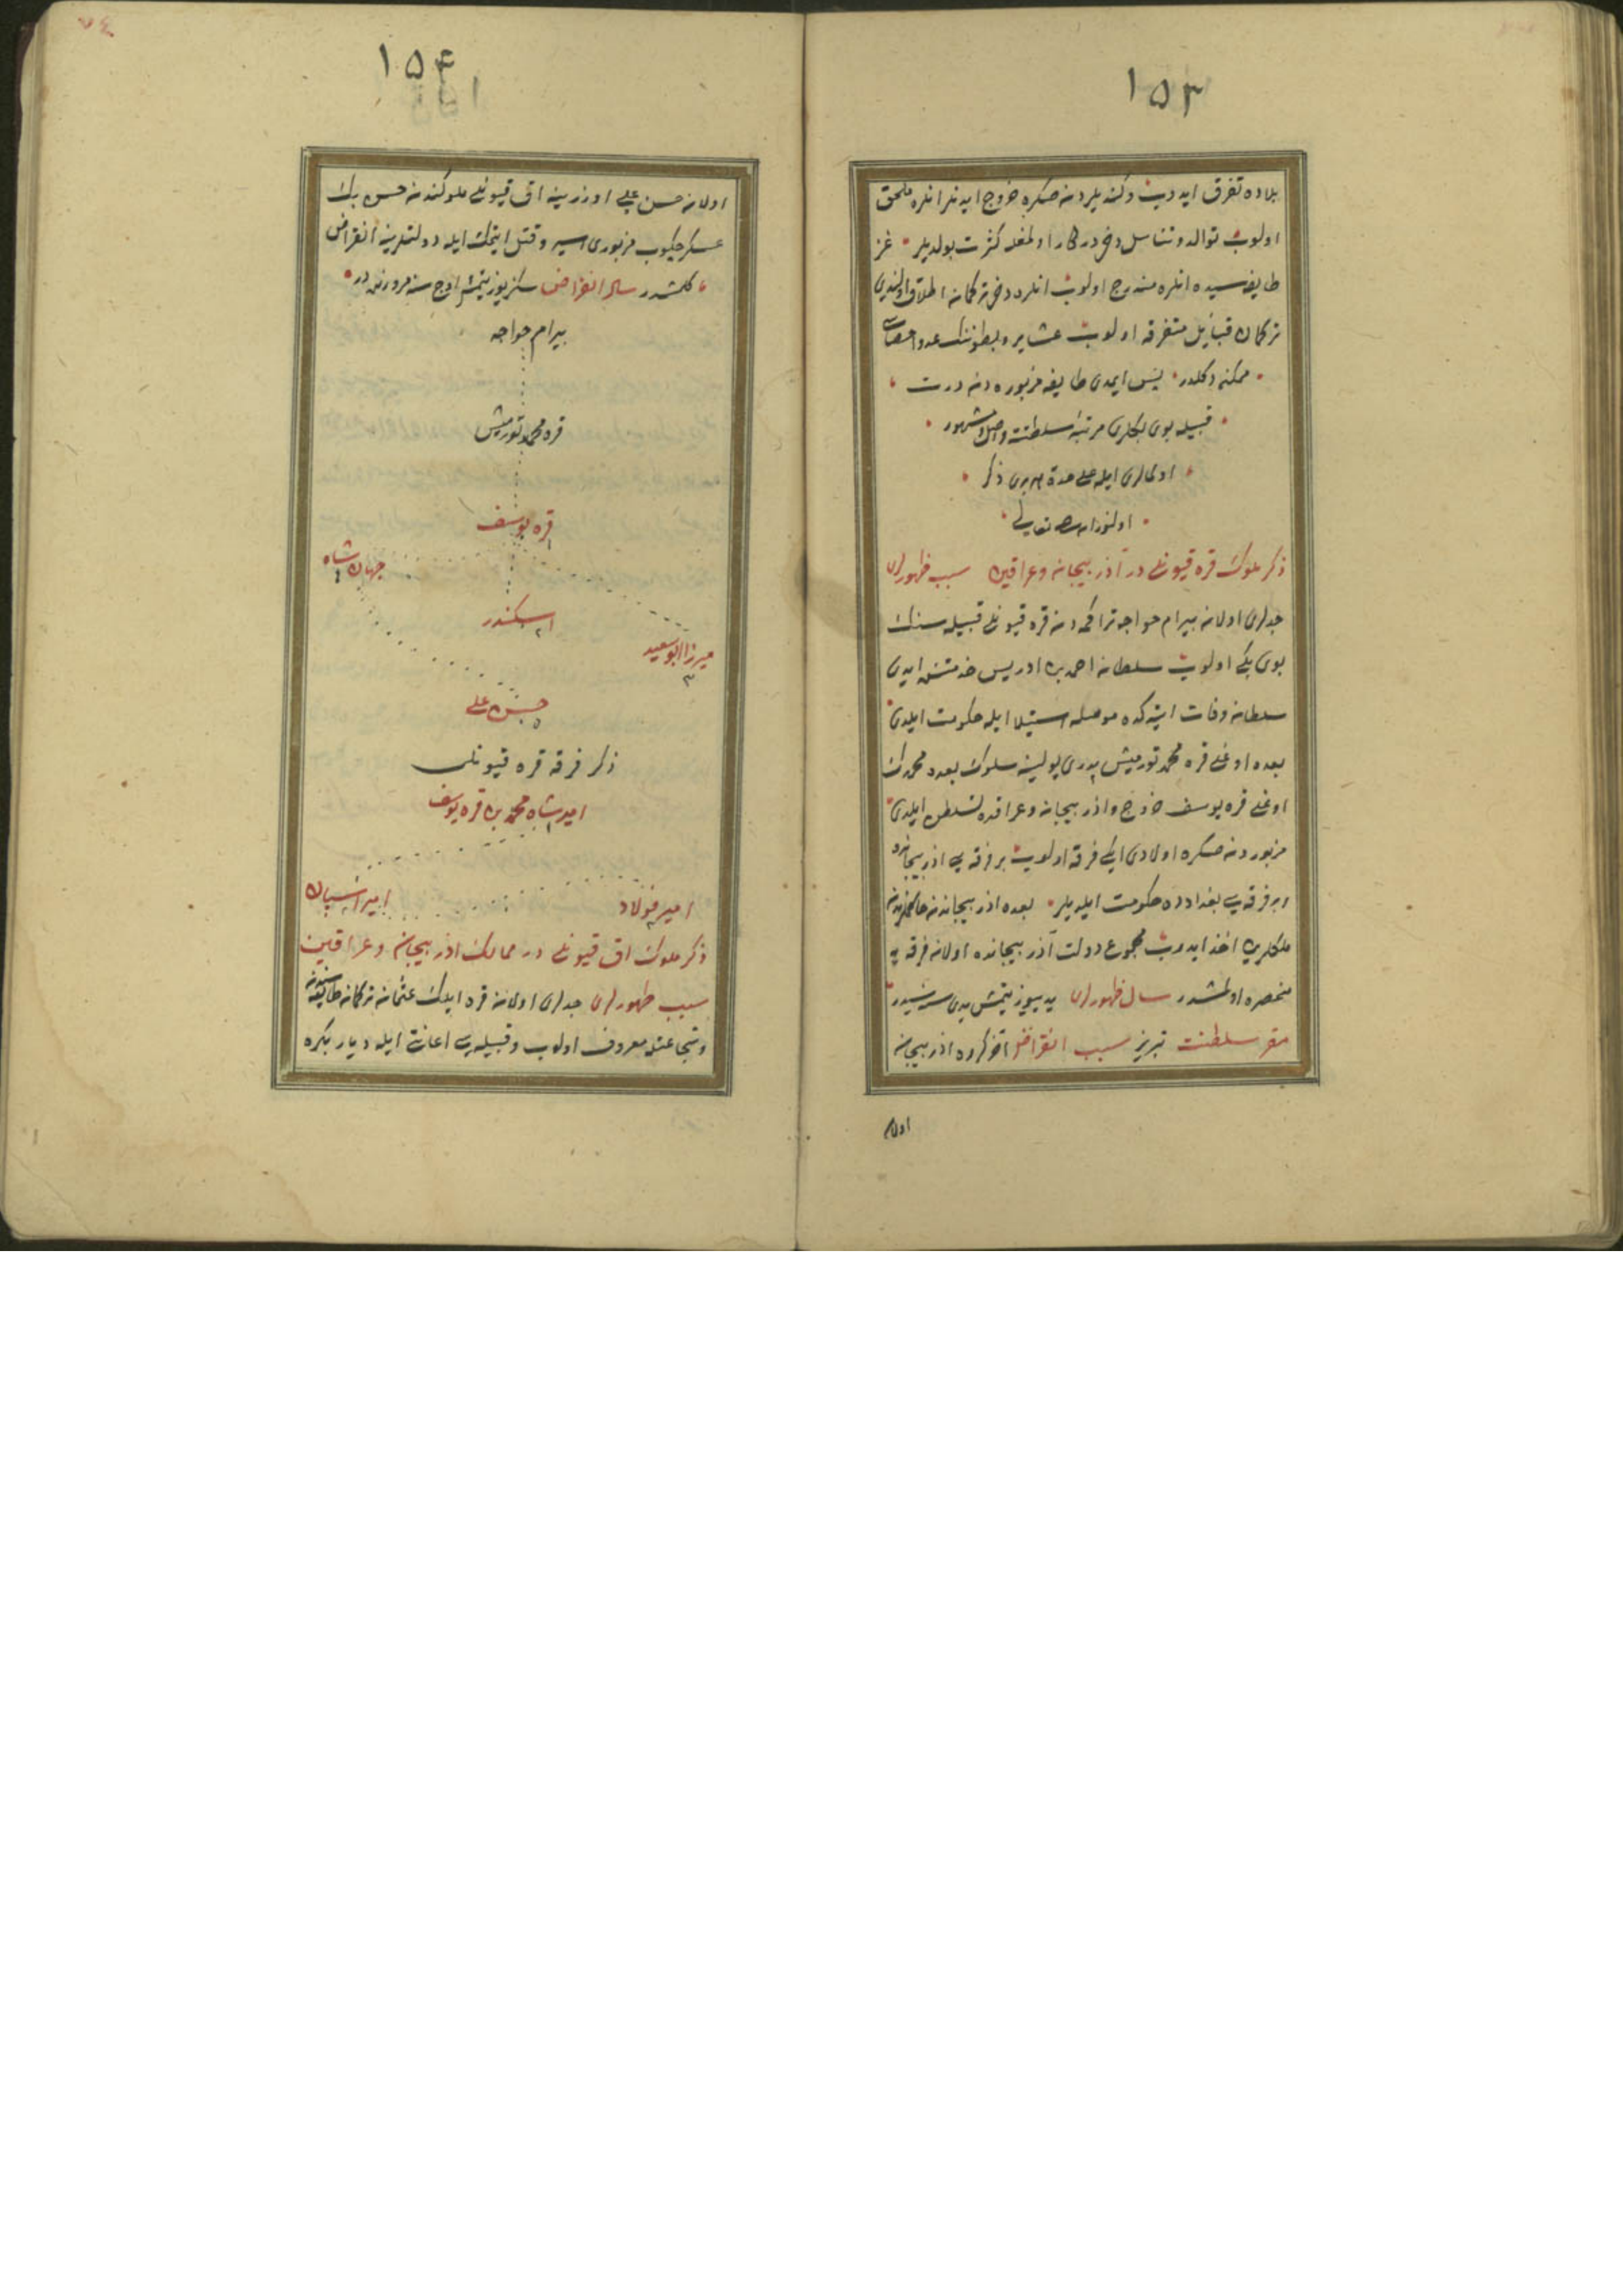 ١٥٣
بلاده تفرق ایدوب وکندیلردنه صکره خروج ایدنلر انلره ملحق
اولوب توالد و تناسل دخی درکار اولمغله کثرت بولدیلر غز
طایفه سیده انلره مندرج اولوب انلره دخی ترکمانه اطلاق اولندی
ترکمان قبایل متفرقه اولوب عشایر و بطوننک عد و احصاسی
ممکنه دکلدر پس ایمدی طایفه مزبوره دنه درت
قبیله بوی بکلری مرتبه سلطنته واصل و مشهور
اولمالری ایله علی حدة هر بری ذکر
اولنور ان شاء الله تعالی
ذکر ملوک قره قیونلی در آذربیجانه وعراقین سبب ظهورلری
جدلری اولانه بیرام خواجه تراکمه دنه قره قیونلی قبیله سنک
بوی بکی اولوب سلطانه احمد بن ادریس خدمتنده ایدی
سلطانه وفات ایتدکده موصله استیلا ایله حکومت ایلدی
بعده اوغلی قره محمد تورمیش پدری یولینه سلوک بعده محمدک
اوغلی قره یوسف خروج واذربیجانه وعراقده تسلطن ایلدی
مزبوردنه صکره اولادی ایکی فرقه اولوب بر فرقه سی اذربیجانده
و بر فرقه سی بغدادده حکومت ایلدیلر بعده اذربیجاندنه
ملکلرین اخذ ایدوب مجموع دولت آذربیجانده اولانه فرقه یه
منحصره اولمشدر سال ظهورلری یدییوز یتمش یدی سنه سیدر
مقر سلطنت تبریز سبب انقراض اذربیجانه
اولانه
١٥۴
٧٤
اولانه حسن علی اوزرینه اق قیونلی ملوکندنه حسن بک
عسکر چکوب مزبوری اسیر وقتل ایتمک ایله دولتلرینه انقراض
کلمشدر سال انقراض سکزیوز یتمش اوچ سنه مرورنده در
بیرام خواجه
قره محمد تورمیش
قره یوسف
١
جهان شاه
٤
اسکندر
٢
میرزا ابوسعید
٣
حسن علی
٥
ذکر فرقه قره قیونلی
امیر شاه محمد بن قره یوسف
١
امیر فولاد
امیر اسپان
ذکر ملوک اق قیونلی در ممالک اذربیجان وعراقین
سبب ظهورلری جدلری اولانه قره ایلک عثمانه ترکمانه طایفه سندنه
وشجاعتله معروف اولوب وقبیله سی اعانتی ایله دیار بکره